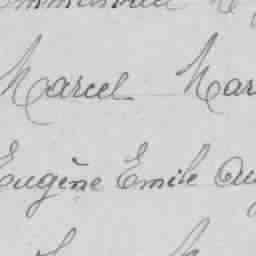 Marcel Mar
Eugène Emile Au